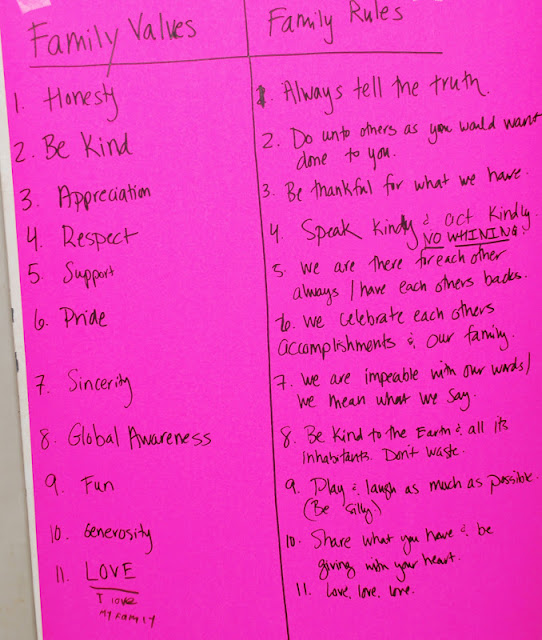 Family Values
1. Honesty
2. Be Kind
3. Appreciation
4. Respect
5. Support
6. Pride
7. Sincerity
8. Global Awareness
9. Fun
10. Generosity
11. LOVE
I love
MY FAMILY
Family Rules
1. Always tell the truth.
2. Do unto others as you would want
done to you.
3. Be thankful for what we have.
4. Speak kindly & act kindly.
NO WHINING!
5. We are there for each other
always / have each others backs.
6. We celebrate each others
accomplishments & our family.
7. We are impecable with our words /
we mean what we say.
8. Be Kind to the Earth & all its
inhabitants. Don't waste.
9. Play & laugh as much as possible.
(Be silly)
10. Share what you have & be
giving with your heart.
11. Love, love, love.